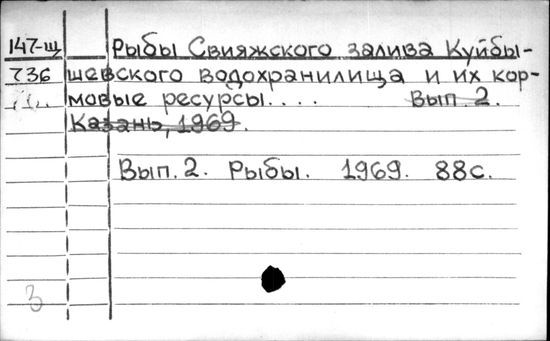 147-щ Рыбы Свияжского залива Куйбы-
Т36 шевского водохранилища и их кор-
мовые ресурсы.... Вып. 2.
Казань, 1969.
Вып. 2. Рыбы. 1969. 88с.
3